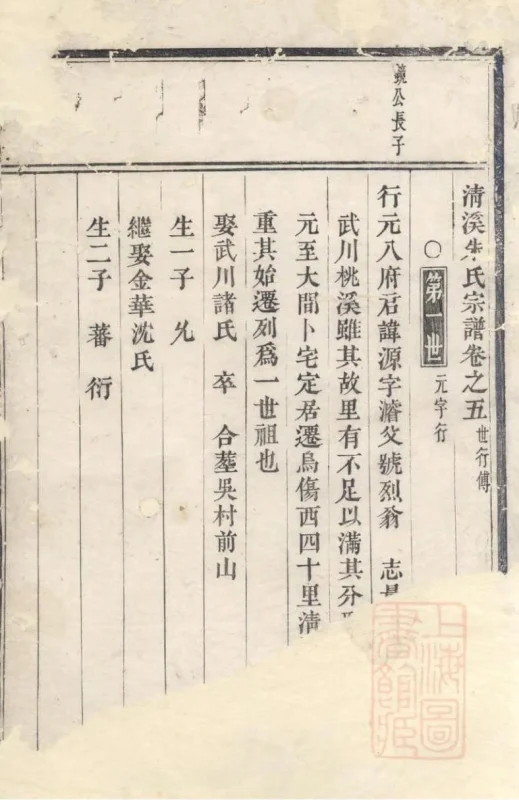 清溪朱氏宗譜卷之五 世行傳
○ 第一世 元字行
鏡公長子
行元八府君諱源字濬父號烈翁 志
武川桃溪雖其故里有不足以滿其
元至大間卜宅定居遷烏傷西四十里清
重其始遷列爲一世祖也
娶武川諸氏 卒 合塟吳村前山
生一子 允
繼娶金華沈氏
生二子 蕃 衍
上海圖
書館藏